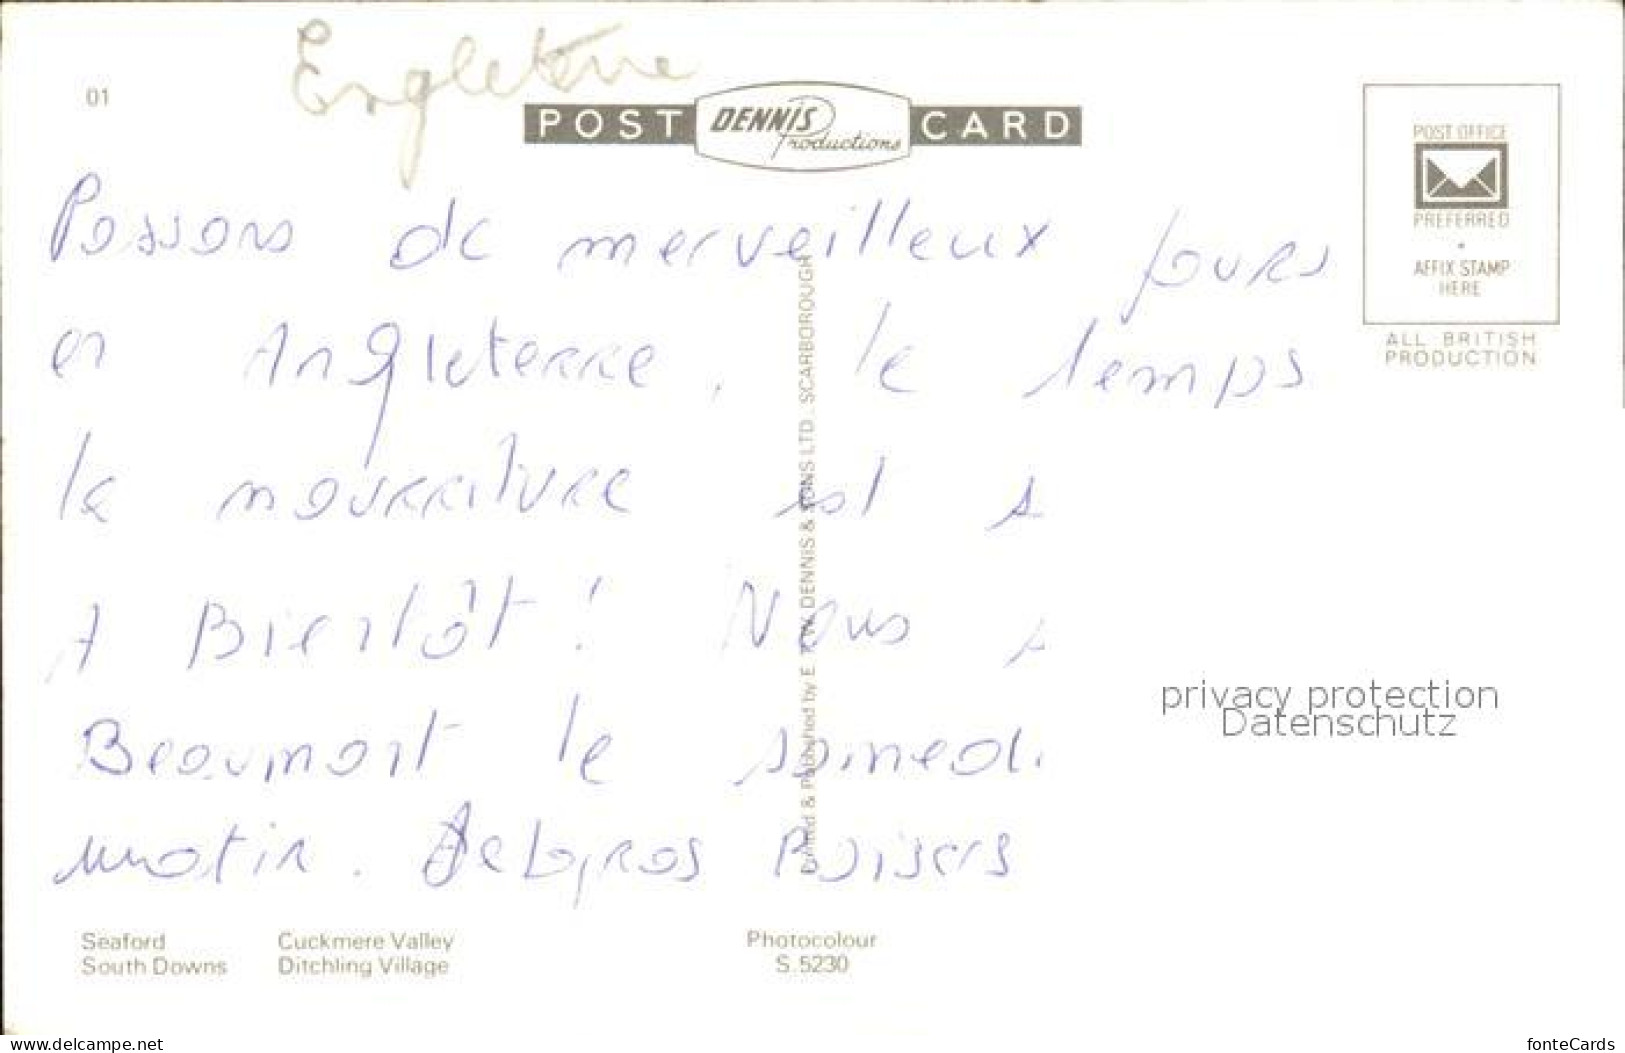 Engleterre
01
POST DENNIS Productions CARD
POST OFFICE
PREFERRED
AFFIX STAMP
HERE
ALL BRITISH
PRODUCTION
Passons de merveilleux jours
en Angleterre, le temps
la nourriture est s
A Bientôt ! Nous s
Beaumont le samedi
matin. de gros Baisers
Printed & Published by E. T. W. DENNIS & SONS LTD., SCARBOROUGH
privacy protection
Datenschutz
Seaford Cuckmere Valley
South Downs Ditchling Village
Photocolour
S.5230
www.delcampe.net
fonteCards